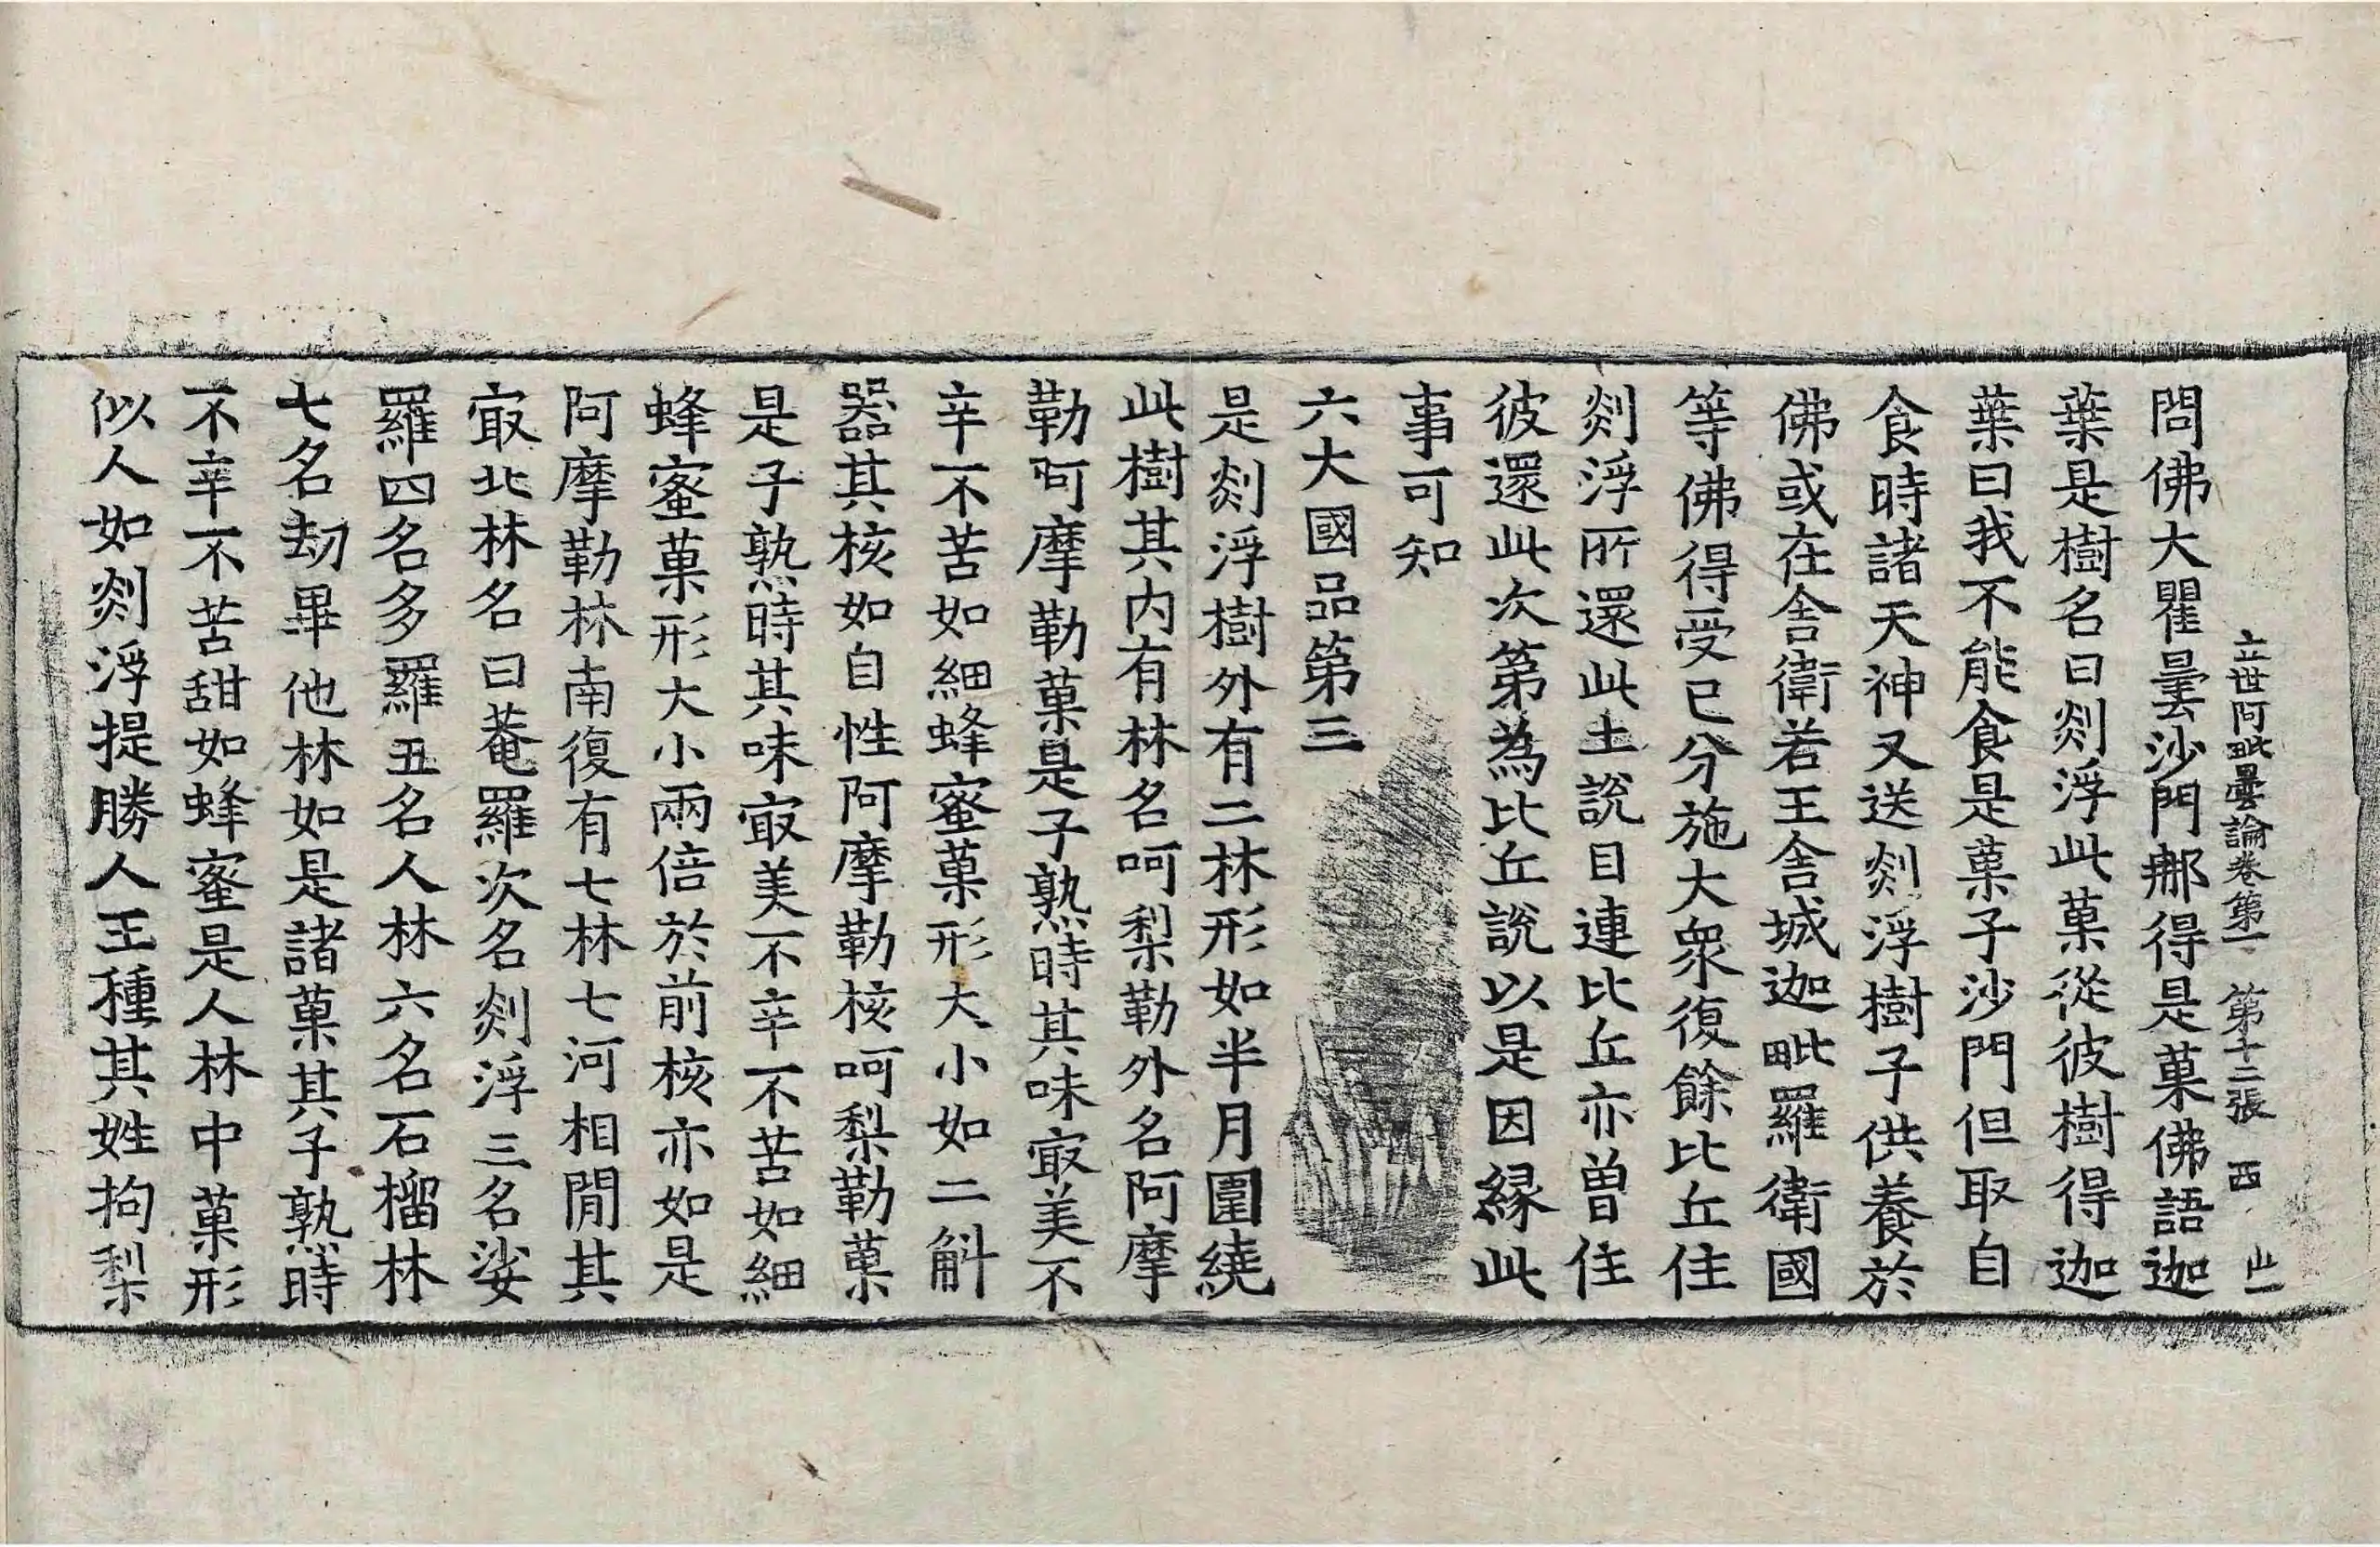 立世阿毗曇論卷第一 第十二張 西 此一
問佛大瞿曇沙門那得是菓佛語迦
葉是樹名曰剡浮此菓從彼樹得迦
葉曰我不能食是菓子沙門但取自
食時諸天神又送剡浮樹子供養於
佛或在舍衛若王舍城迦毗羅衛國
等佛得受已分施大衆復餘比丘住
剡浮所還此土說目連比丘亦曽住
彼還此次第為比丘說以是因縁此
事可知
六大國品第三
是剡浮樹外有二林形如半月圍繞
此樹其内有林名呵梨勒外名阿摩
勒呵摩勒菓是子熟時其味㝡美不
辛不苦如細蜂蜜菓形大小如二斛
器其核如自性阿摩勒核呵梨勒菓
是子熟時其味㝡美不辛不苦如細
蜂蜜菓形大小兩倍於前核亦如是
阿摩勒林南復有七林七河相閒其
㝡北林名曰菴羅次名剡浮三名娑
羅四名多羅五名人林六名石榴林
七名劫畢他林如是諸菓其子熟時
不辛不苦甜如蜂蜜是人林中菓形
似人如剡浮提勝人王種其姓拘梨